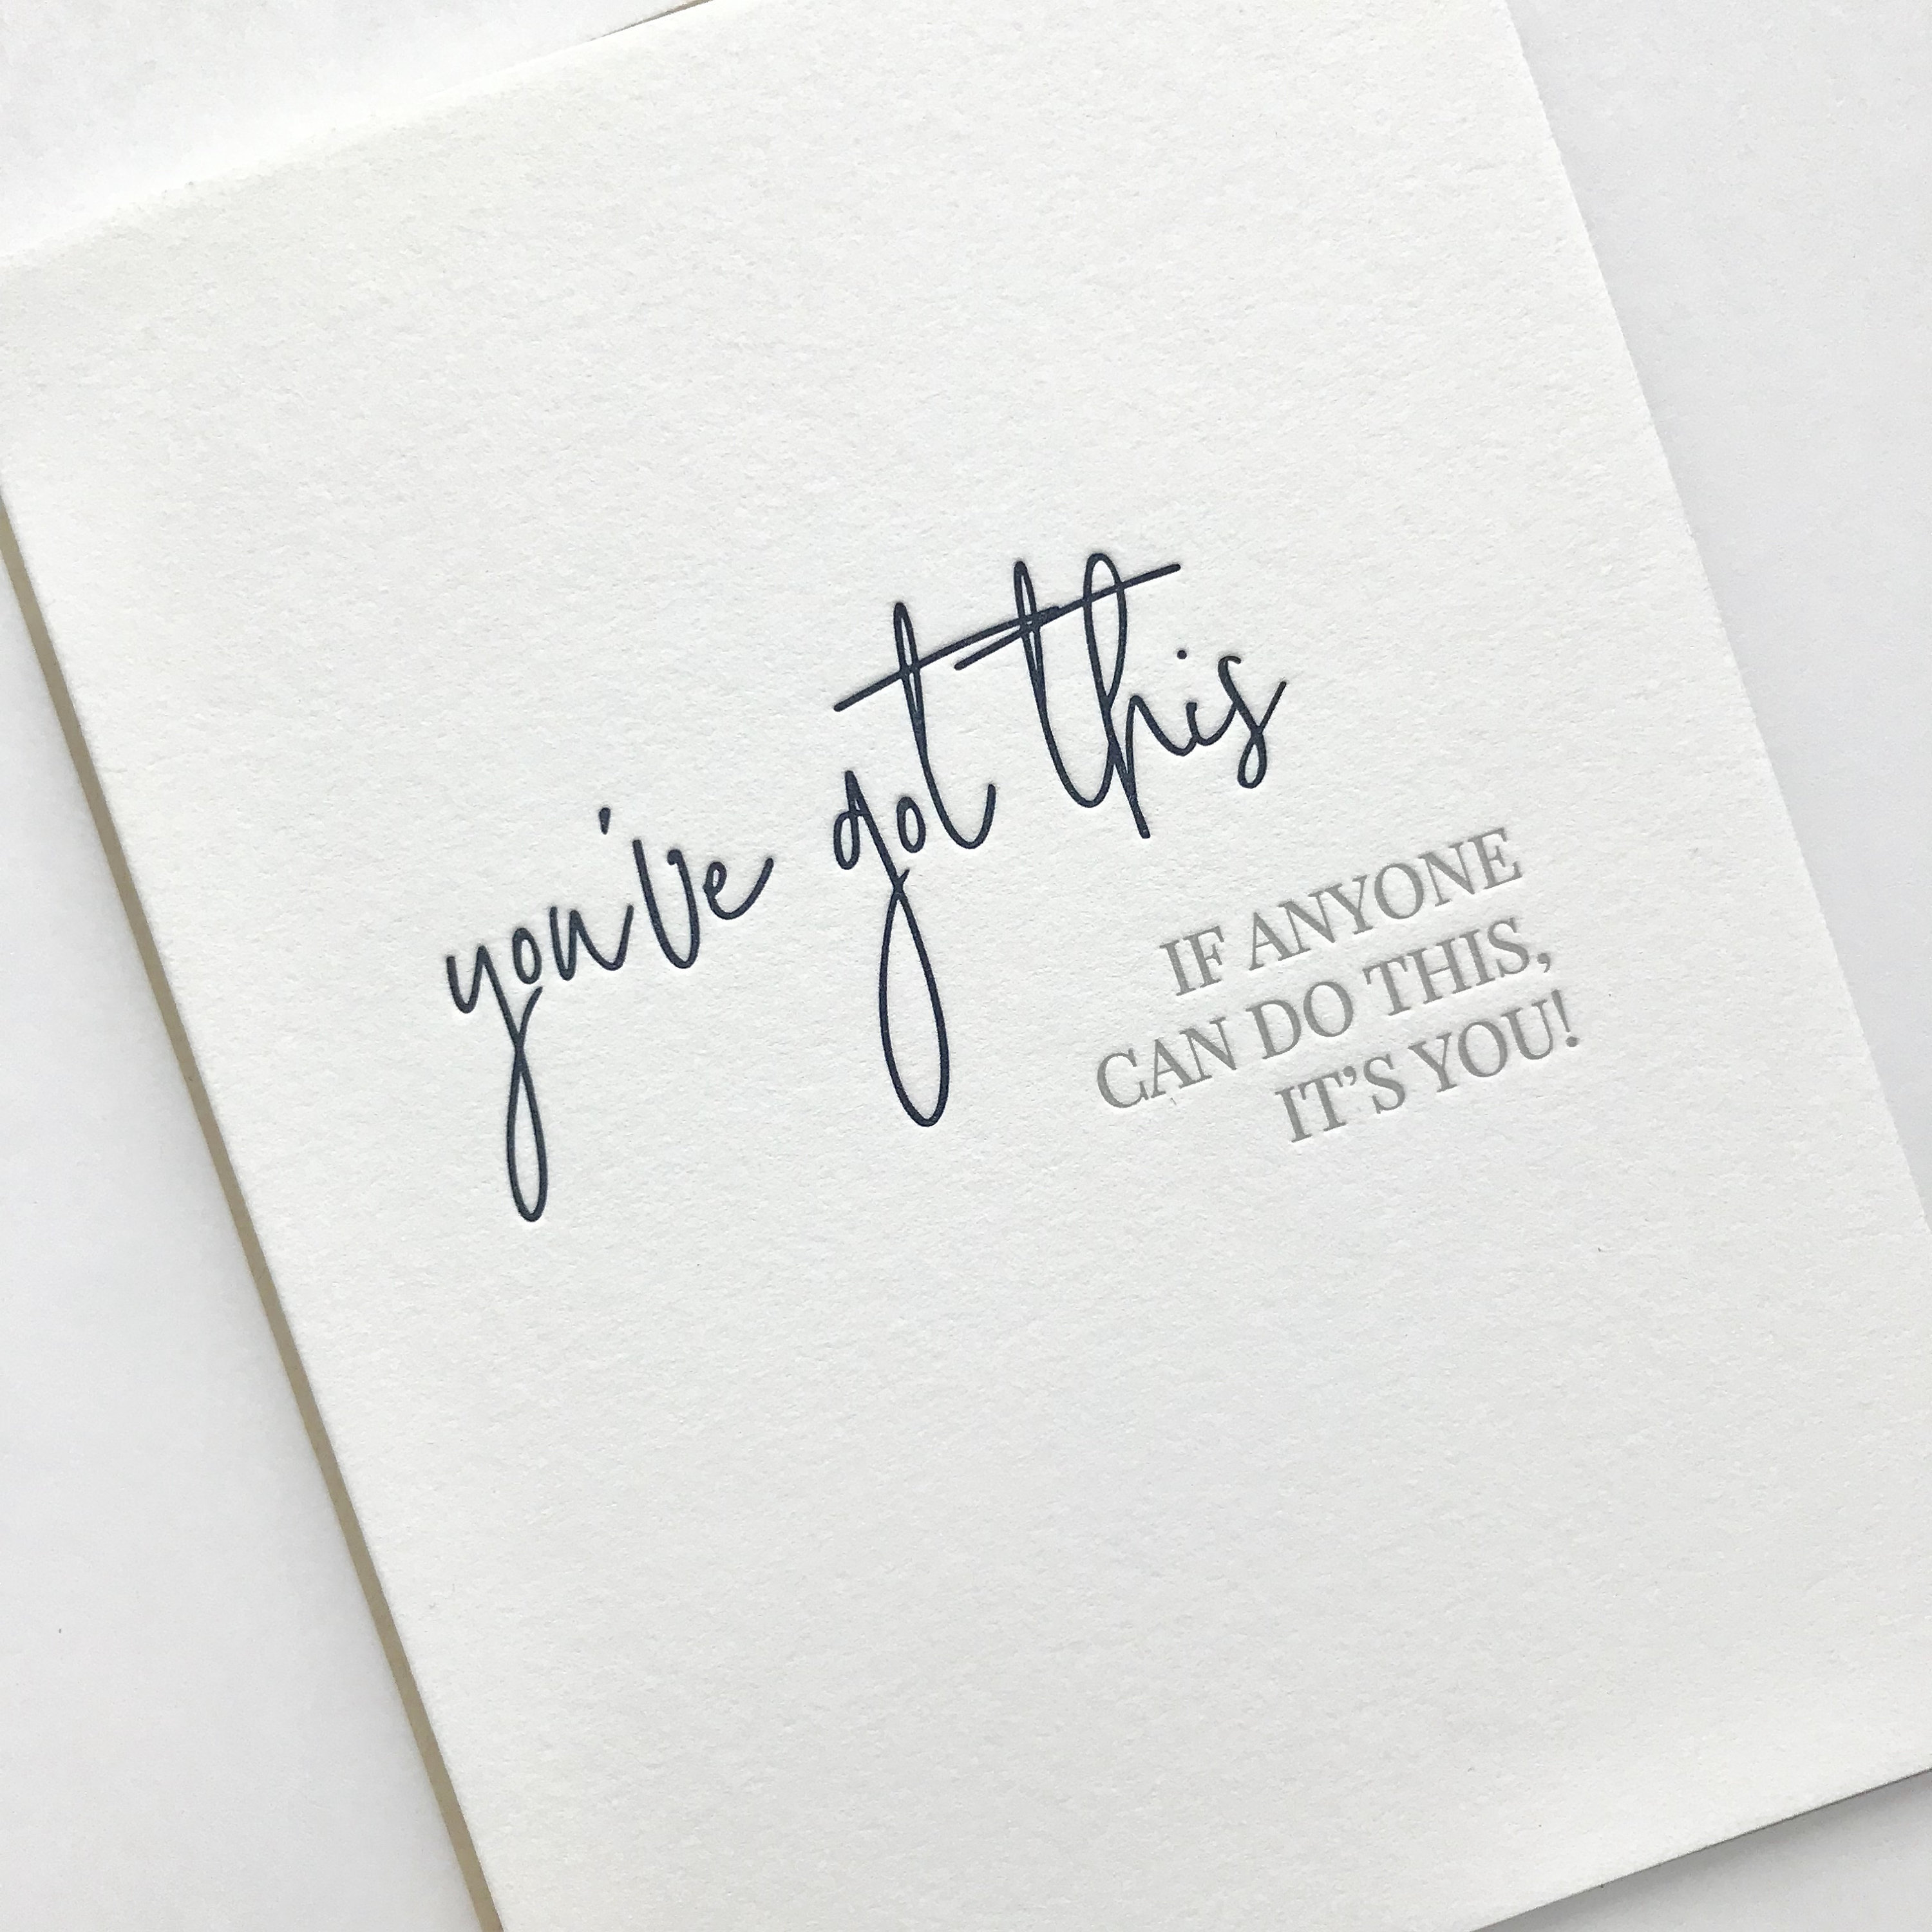 you've got this
IF ANYONE
CAN DO THIS,
IT'S YOU!